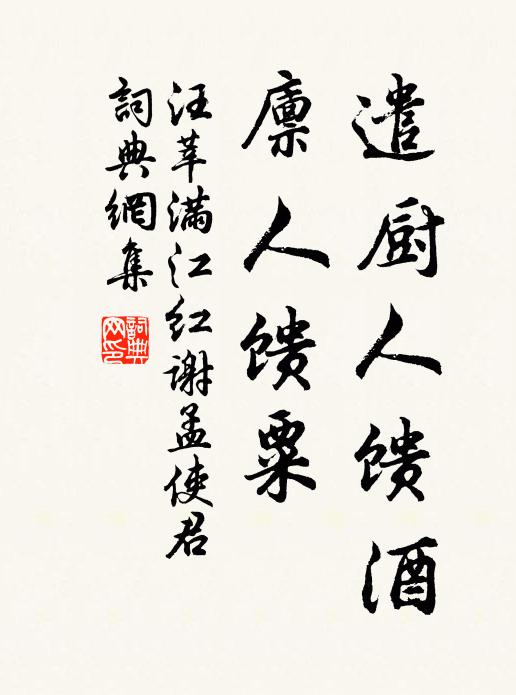 遣厨人馈酒
廪人馈粟
汪莘满江红谢孟使君
詞典網集
詞典网印